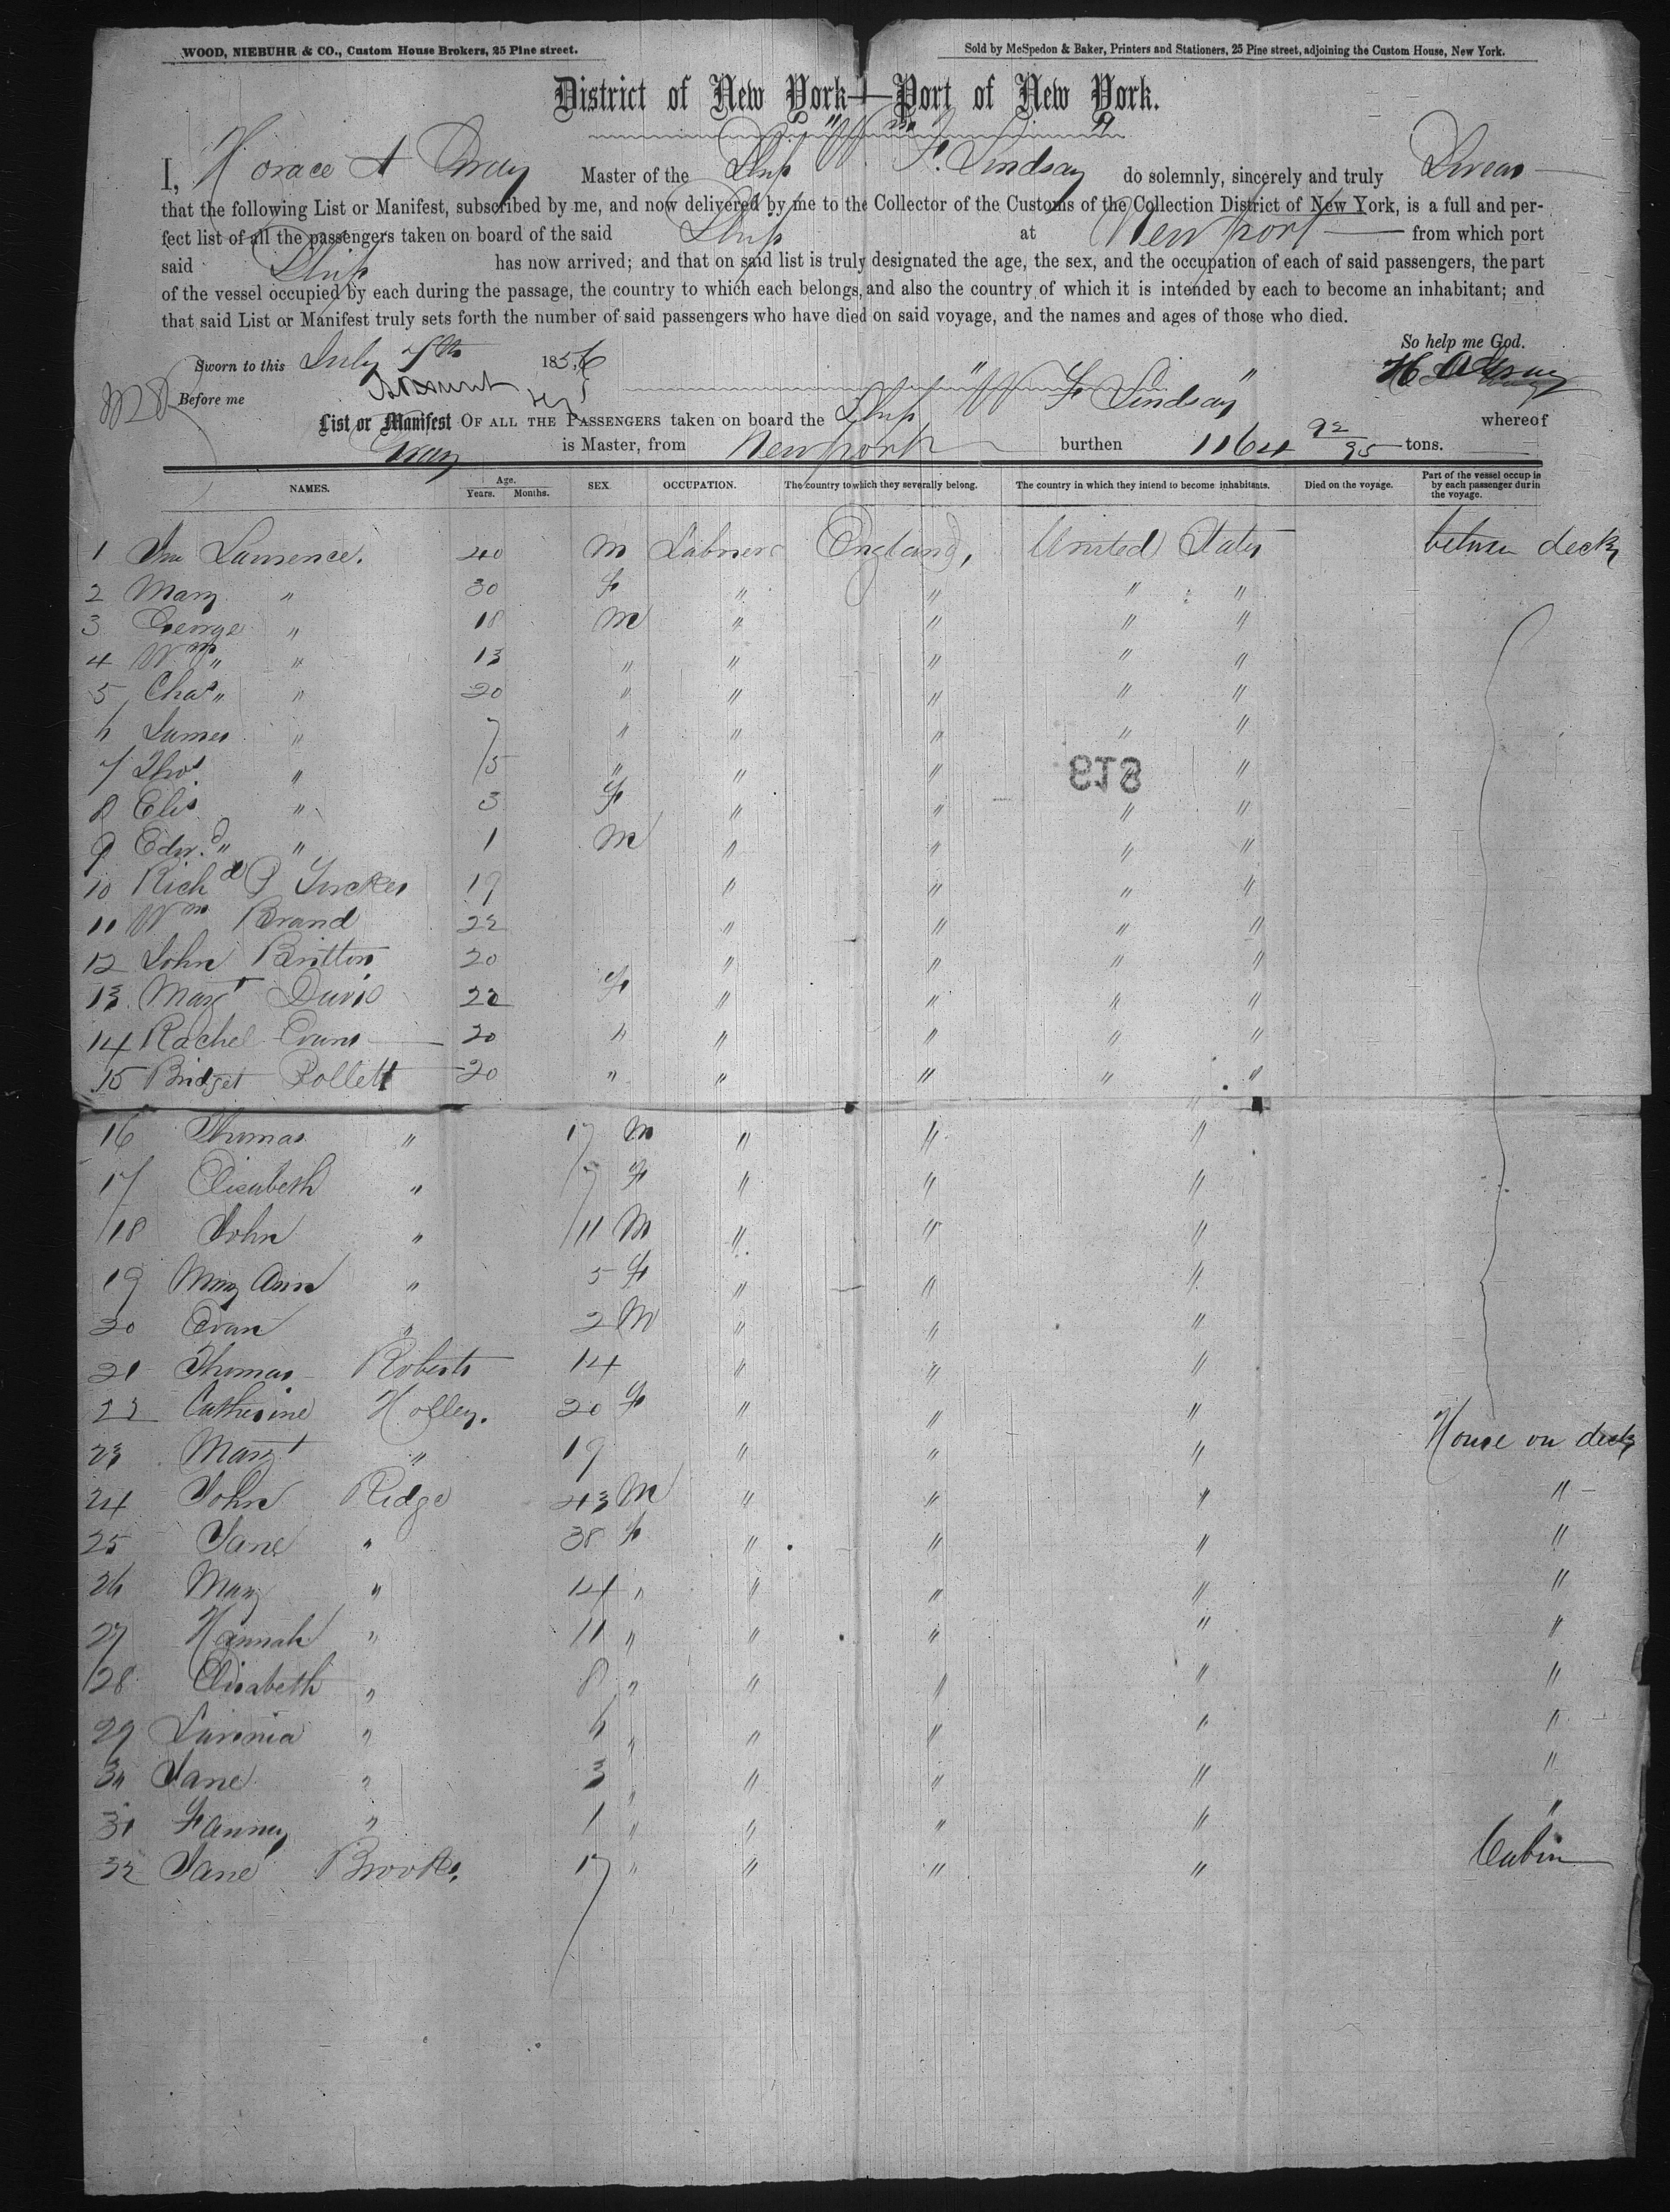 WOOD, NIEBUHR & CO., Custom House Brokers, 25 Pine street.
Sold by McSpedon & Baker, Printers and Stationers, 25 Pine street, adjoining the Custom House, New York.
District of New York—Port of New York.
I, Horace A Gray Master of the Ship "Wm F. Lindsay" do solemnly, sincerely and truly Swear
that the following List or Manifest, subscribed by me, and now delivered by me to the Collector of the Customs of the Collection District of New York, is a full and per-
fect list of all the passengers taken on board of the said Ship at Newport from which port
said Ship has now arrived; and that on said list is truly designated the age, the sex, and the occupation of each of said passengers, the part
of the vessel occupied by each during the passage, the country to which each belongs, and also the country of which it is intended by each to become an inhabitant; and
that said List or Manifest truly sets forth the number of said passengers who have died on said voyage, and the names and ages of those who died.
So help me God.
Sworn to this July 7th 1856
H A Gray
Before me
List or Manifest OF ALL THE PASSENGERS taken on board the Ship "W F Lindsay" whereof
Gray is Master, from Newport burthen 1164 92/95 tons.
NAMES. Age. Years. Months. SEX. OCCUPATION. The country to which they severally belong. The country in which they intend to become inhabitants. Died on the voyage. Part of the vessel occup ie by each passenger durin the voyage.
1 Lawrence. 40 M Labourer England, United States between decks
2 Mary " 30 F " " " "
3 George " 18 M " " " "
4 Wm " " 13 " " " " "
5 Chas " " 20 " " " " "
6 James " 7 " " " " "
7 Thos. " 5 " " " " "
8 Elis. " 3 F " " " "
9 Edwd. " " 1 M " " " "
10 Richd P Tucker 19 " " " "
11 Wm Brand 22 " " " "
12 John Britton 20 " " " "
13 Margt Davis 22 F " " " "
14 Rachel Evans 20 " " " " "
15 Bridget Pollett 20 " " " " "
16 Thomas " 17 M " " "
17 Elisabeth " 7 F " " "
18 John " 11 M " " "
19 Mary Ann " 5 F " " "
20 Evan " 2 M " " "
21 Thomas Roberts 14 " " "
22 Catherine Holley. 20 F " " "
23 Margt " 19 " " " House on deck
24 John Ridge 43 M " " " "
25 Jane " 38 F " " " "
26 Mary " 14 " " " " "
27 Hannah " 11 " " " " "
28 Elisabeth " 8 " " " " "
29 Lavinia " 6 " " " " "
30 Jane " 3 " " " " "
31 Fanny " 1 " " " " "
32 Jane Brooks. 17 " " " " Cabin